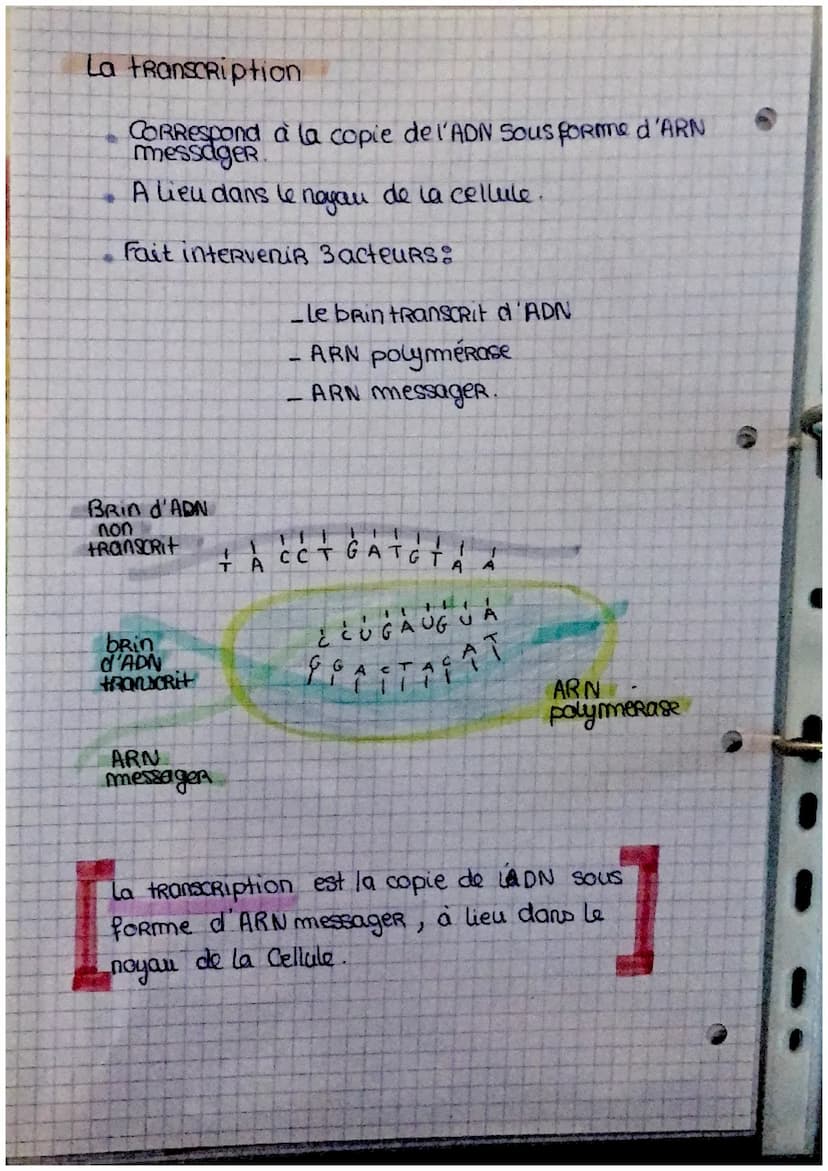 La transcription
• Correspond à la copie de l'ADN sous forme d'ARN
messager.
• A lieu dans le noyau de la cellule.
• Fait intervenir 3 acteurs :
- Le brin transcrit d'ADN
- ARN polymérase
- ARN messager.
Brin d'ADN
non
transcrit
T A C C T G A T G T A A
C C U G A U G U A
brin
d'ADN
transcrit
G G A C T A C A T
ARN
polymérase
ARN
messager
La transcription est la copie de l'ADN sous
forme d'ARN messager, à lieu dans le
noyau de la Cellule.